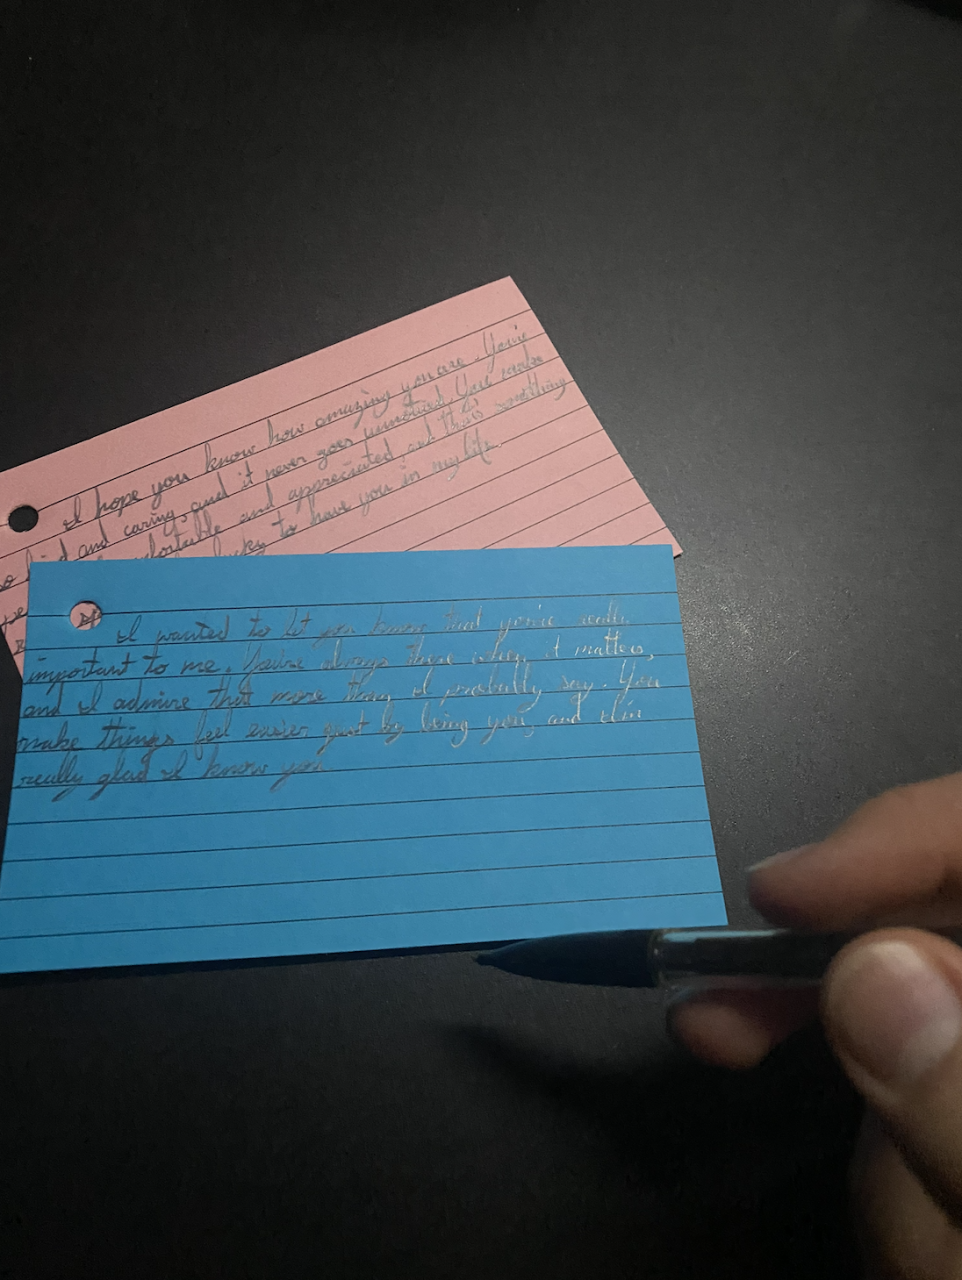 I hope you know how amazing you are. You're
so kind and caring, and it never goes unnoticed. You make
comfortable and appreciated, and that's something
lucky to have you in my life.
I wanted to let you know that you're really
important to me. You're always there when it matters,
and I admire that more than I probably say. You
make things feel easier just by being you, and I'm
really glad I know you.